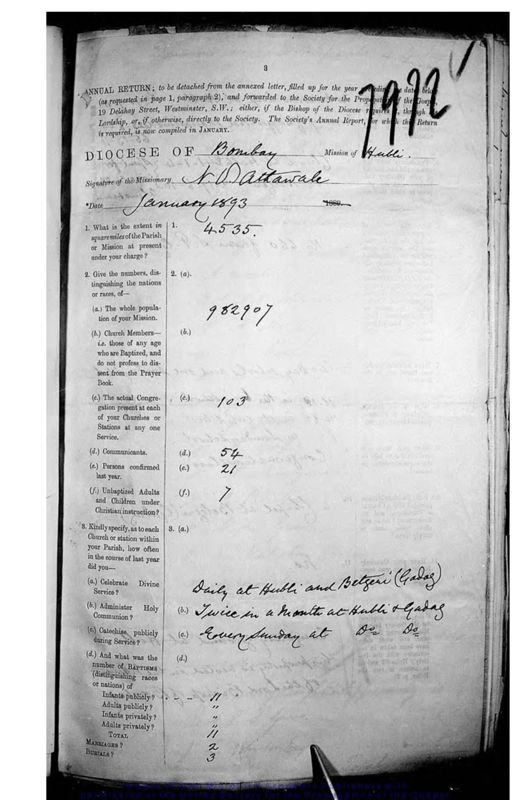 3
7972
ANNUAL RETURN; to be detached from the annexed letter, filled up for the year ending date below
(as requested in page 1, paragraph 2), and forwarded to the Society for the Propagation of the Gospel,
19 Delahay Street, Westminster, S.W.; either, if the Bishop of the Diocese requires, through
Lordship, or, if otherwise, directly to the Society. The Society's Annual Report, for which this Return
is required, is now compiled in JANUARY.
DIOCESE OF Bombay Mission of Hubli.
Signature of the Missionary N. Athawale
*Date January 1893
1. What is the extent in 1. 4535.
square miles of the Parish
or Mission at present
under your charge?
2. Give the numbers, dis- 2. (a).
tinguishing the nations
or races, of—
(a.) The whole popula- 982907
tion of your Mission.
(b.) Church Members— (b.)
i.e. those of any age
who are Baptized, and
do not profess to dis-
sent from the Prayer
Book.
(c.) The actual Congre- (c.) 103
gation present at each
of your Churches or
Stations at any one
Service.
(d.) Communicants. (d.) 54
(e.) Persons confirmed (e.) 21
last year.
(f.) Unbaptized Adults (f.) 7
and Children under
Christian instruction?
3. Kindly specify, as to each 3. (a.)
Church or station within
your Parish, how often
in the course of last year
did you—
(a.) Celebrate Divine Daily at Hubli and Betgeri (Gadag)
Service?
(b.) Administer Holy (b.) Twice in a Month at Hubli & Gadag
Communion?
(c.) Catechise, publicly (c.) Every Sunday at Do Do
during Service?
(d.) And what was the (d.)
number of BAPTISMS
(distinguishing races
or nations) of
Infants publicly? 11
Adults publicly? "
Infants privately? "
Adults privately? "
TOTAL 11
MARRIAGES? 2
BURIALS? 3